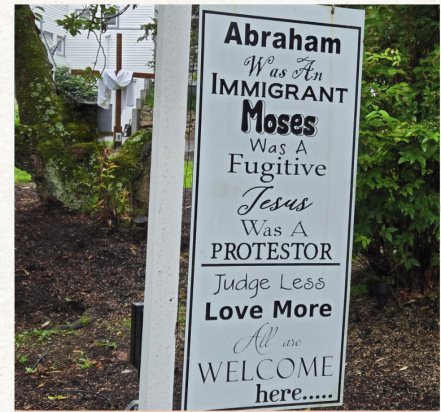 Abraham
Was An
IMMIGRANT
Moses
Was A
Fugitive
Jesus
Was A
PROTESTOR
Judge Less
Love More
All are
WELCOME
here.....